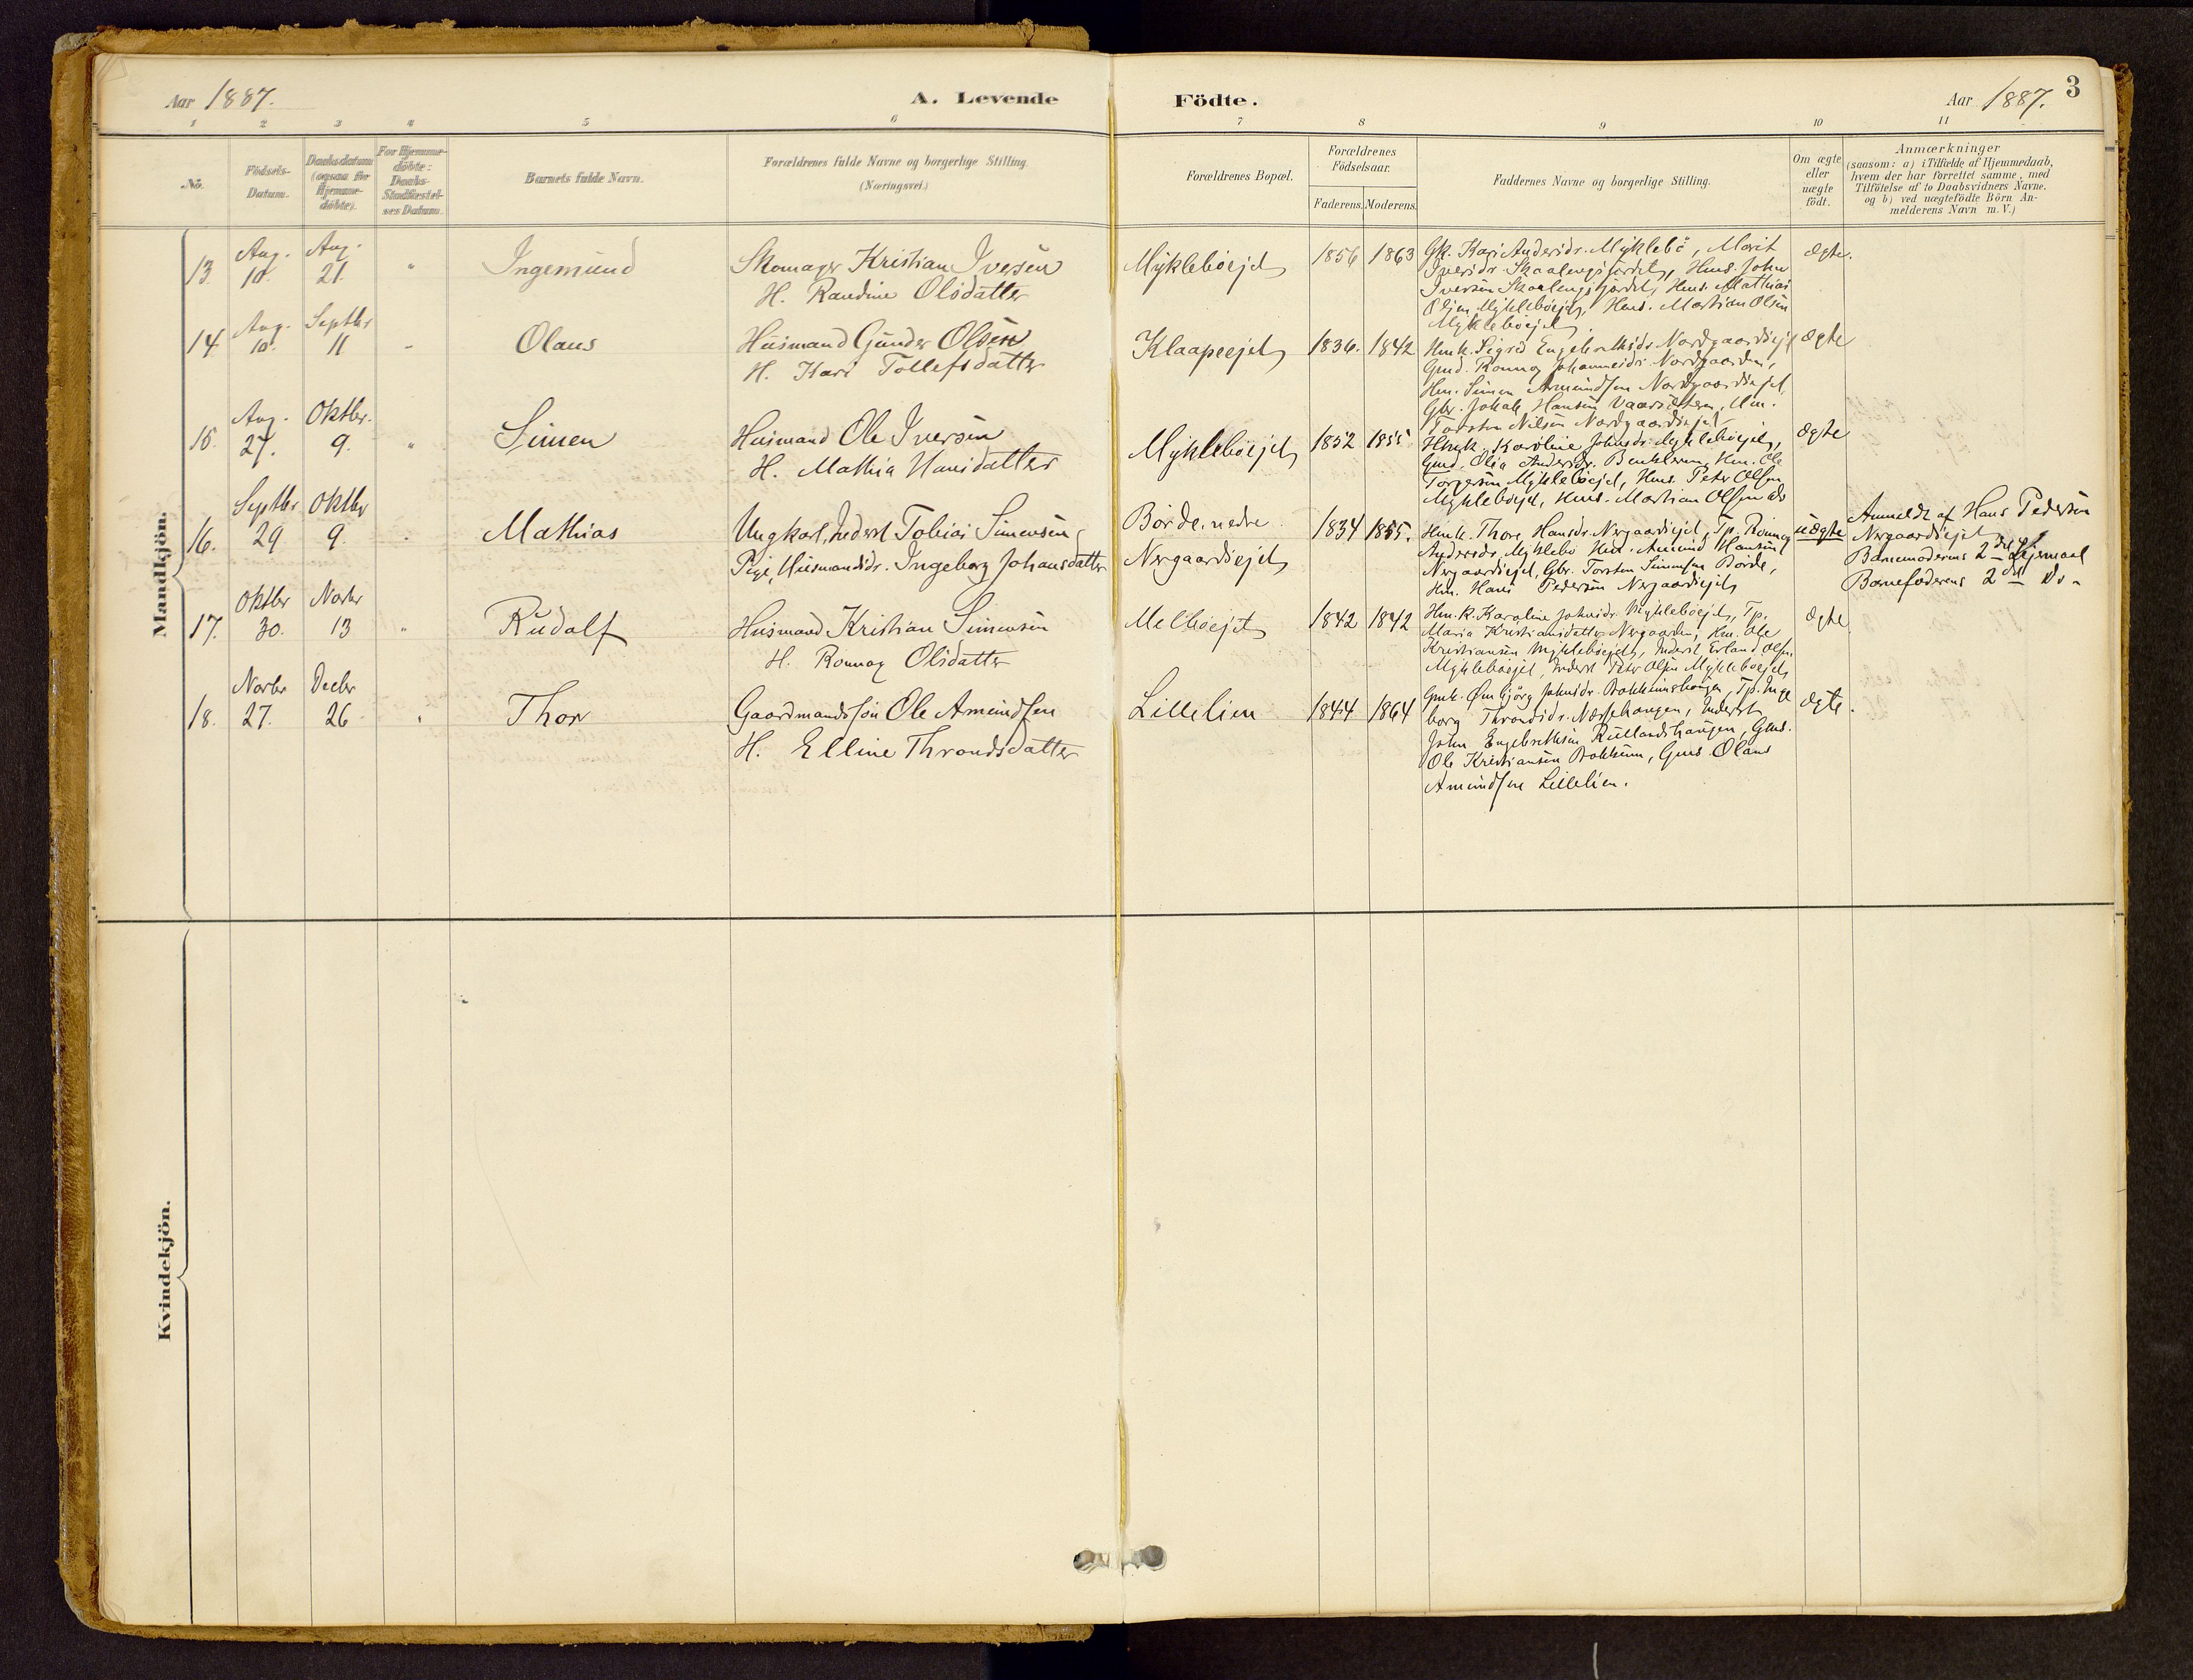 Aar 1887.
A. Levende Födte.
Aar 1887.
3
1 2 3 4 5 6 7 8 9 10 11
No.
Födsels-Datum.
Daabsdatum (ogsaa for Hjemme-döbte).
For Hjemme-döbte: Daabs-Stadfæstel-ses Datum.
Barnets fulde Navn.
Forældrenes fulde Navne og borgerlige Stilling.
(Næringsvei.)
Forældrenes Bopæl.
Forældrenes Födselsaar.
Faderens. Moderens.
Faddernes Navne og borgerlige Stilling.
Om ægte eller uægte födt.
Anmærkninger
(saasom: a) i Tilfælde af Hjemmedaab,
hvem der har forrettet samme, med
Tilföielse af to Daabsvidners Navne,
og b) ved uægtefödte Börn An-
melderens Navn m. V.)
Mandkjön.
13. Aug. 10. Aug. 21. " Ingemund
Skomager Kristian Iversen
H. Randine Olsdatter
Mykleböejet 1856 1863
Gk. Kari Andersdr. Myklebö, Marit
Iversdr. Skaalengsjordet, Hms. John
Iversen Skaalengsjordet, Hms. Mathias
Olsen Mykleböejet, Hms. Martian Olsen
Mykleböejet.
ægte.
14. Aug. 10. Septbr 11 " Olaus
Husmand Gunder Olsen
H. Kari Tollefsdatter
Klaapeejet 1836. 1842
Hmk. Sigrid Engebretsdr. Nordgaardsejet
Gmd. Rønnog Johannesdr. Nordgaarden,
Hm. Simen Amundsen Nordgaardsejet,
Gbr. Johan Hansen, Hm.
Torsten Nilsen Nordgaardsejet
ægte
15. Aug. 27. Oktbr. 9. " Simen
Husmand Ole Iversen
H. Mathia Hansdatter
Mykleböejet 1852 1855
Hmk. Karoline Johnsdr. Mykleböejet,
Gmd. Olia Andersdr., Hm. Ole
Torgersen Mykleböejet, Hms. Peter Olsen
Mykleböejet, Hms. Martian Olsen do
ægte
16. Septbr 29 Oktbr 9. " Mathias
Ungkarl, Inderst Tobias Simensen,
Pige, Husmandsdr. Ingeborg Johansdatter
Börde, nedre
Nergaardsejet
1834 1855.
Hmk. Thore Hansdr. Nergaardsejet, Tp. Rønnog
Andersdr. Myklebö Hm. Amund Hansen
Nergaardsejet, Gbr. Torsten Simensen Börde,
Hm. Hans Pedersen Nergaardsejet
uægte
Anmeldt af Hans Pedersen
Nergaardsejet
Barnemoderens 2det Leiermaal
Barnefaderens 2det do-
17. Oktbr 30. Novbr 13 " Rudolf
Husmand Kristian Simensen
H. Rønnog Olsdatter
Melböejet 1842 1842
Hmk. Karoline Johnsdr. Mykleböejet, Tp.
Maria Kristiansdatter Nergaarden, Hm. Ole
Kristiansen Mykleböejet, Inderst Erland Olsen
Mykleböejet, Inderst Peter Olsen Mykleböejet,
ægte
18. Novbr 27. Decbr 26 " Thor
Gaardmandssön Ole Amundsen
H. Elline Throndsdatter
Lillelien 1844 1864
Gmk. Johnsdr., Tp. Inge
borg Throndsdr., Inderst
John Engebretsen Rullandshaugen, Gms.
Ole Kristiansen, Gms. Olaus
Amundsen Lillelien.
ægte.
Kvindekjön.